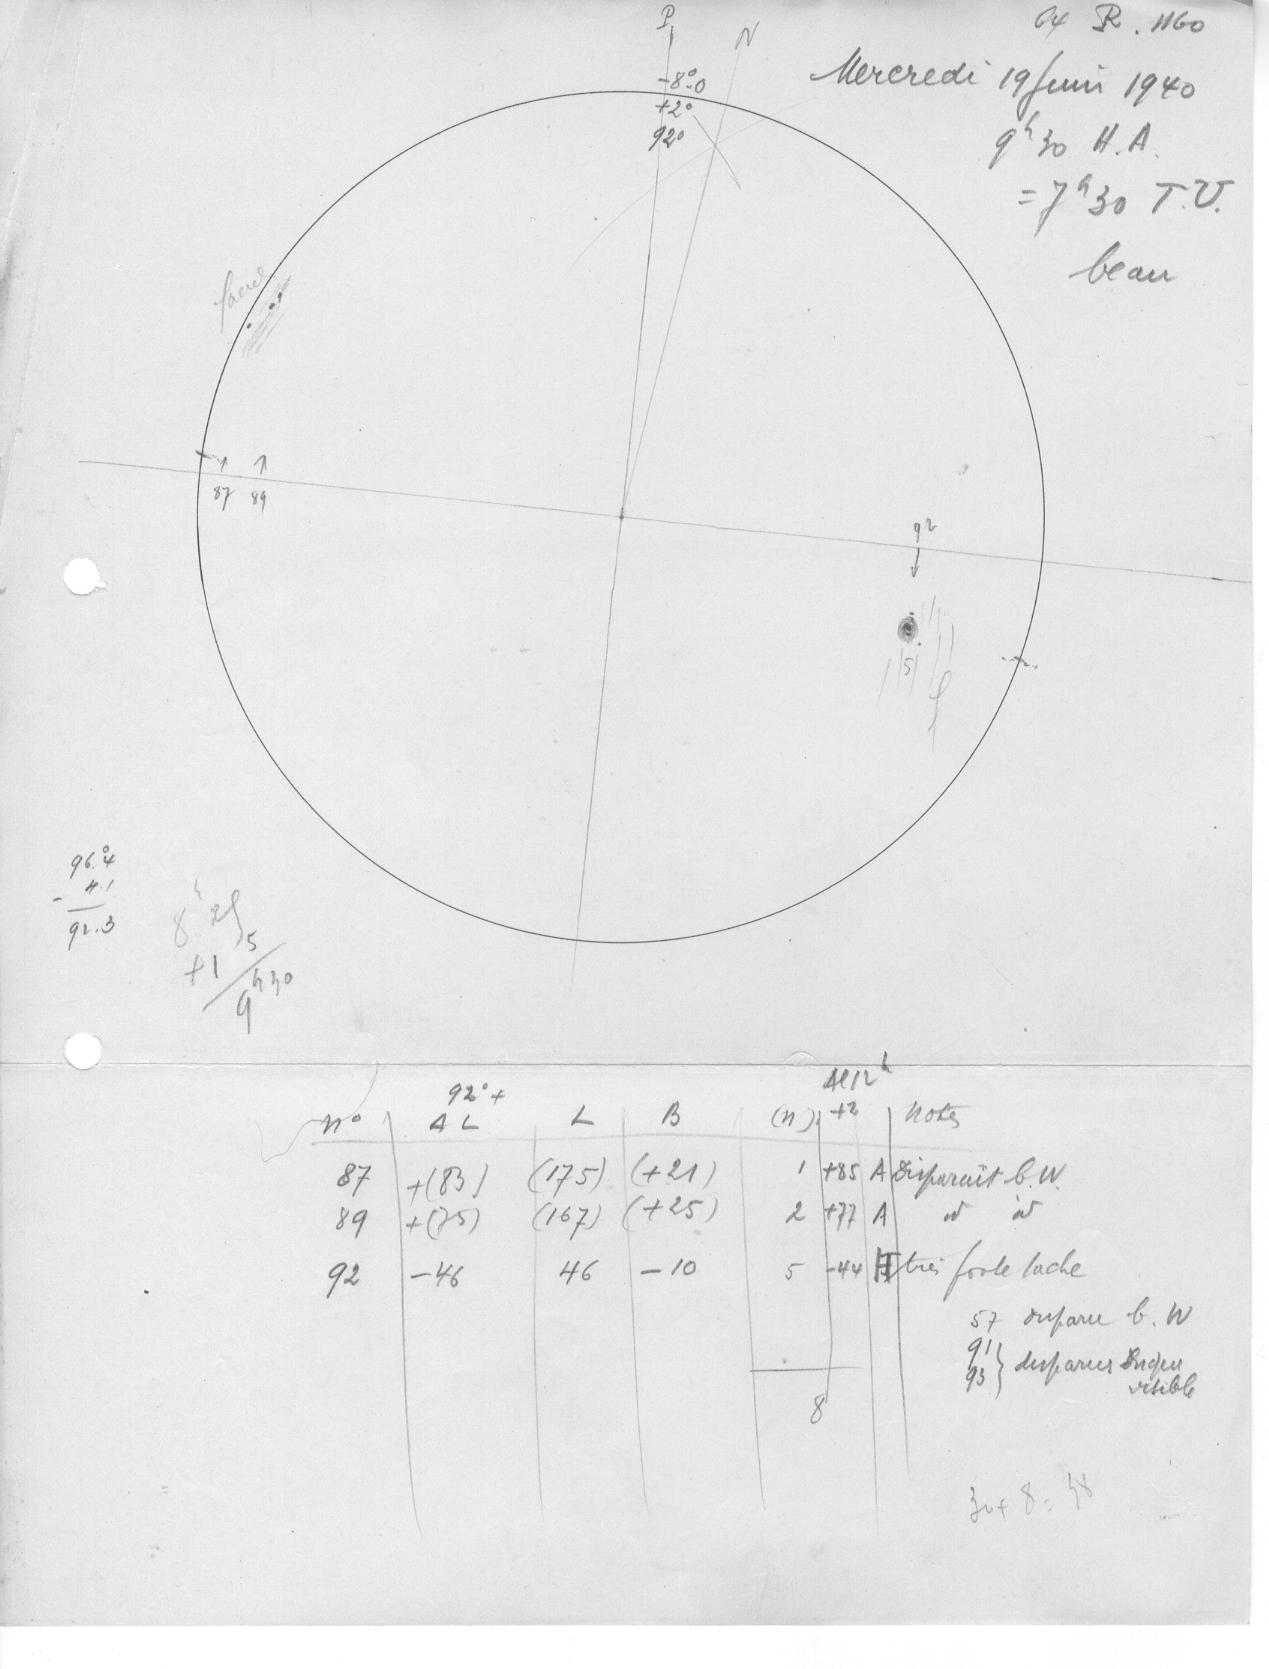 64 R. 1160
Mercredi 19 Juin 1940
9h30 H.A.
=7h30 T.U.
beau
P
N
-8°.0
+2°
92°
facul
87 89
92
5
f
96°.4
- 4.1
92.3
8h 29
5
+1
9h30
92°+
Al 12h
n° AL L B (n) +2 Notes
87 +(83) (175) (+21) 1 +85 A Disparait b.W.
89 +(75) (167) (+25) 2 +77 A id id
92 -46 46 -10 5 -44 H très forte tache
57 disparu b. W
91
93 } disparues
visible
8
30+8=38